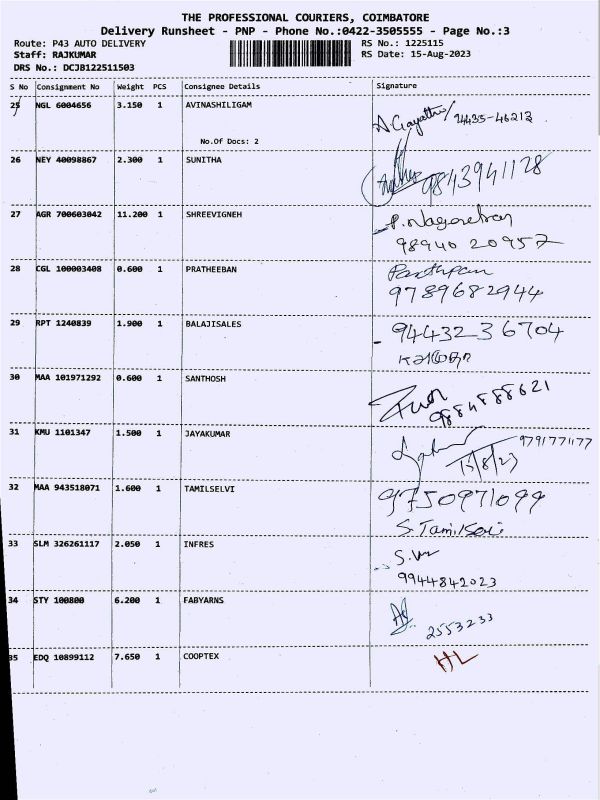 THE PROFESSIONAL COURIERS, COIMBATORE
Delivery Runsheet - PNP - Phone No.:0422-3505555 - Page No.:3
Route: P43 AUTO DELIVERY RS No.: 1225115
Staff: RAJKUMAR RS Date: 15-Aug-2023
DRS No.: DCJB122511503
S No Consignment No Weight PCS Consignee Details Signature
25 NGL 6004656 3.150 1 AVINASHILIGAM
A. Gayathri / 94435-46213
No.Of Docs: 2
26 NEY 40098867 2.300 1 SUNITHA
9843941128
27 AGR 700603042 11.200 1 SHREEVIGNEH
98940 20957
28 CGL 100003408 0.600 1 PRATHEEBAN
Parthipan
9789682944
29 RPT 1240839 1.900 1 BALAJISALES
9443236704
30 MAA 101971292 0.600 1 SANTHOSH
9884888621
31 KMU 1101347 1.500 1 JAYAKUMAR
9791771177
15/8/23
32 MAA 943518071 1.600 1 TAMILSELVI
9750971099
S. Tamilselvi
33 SLM 326261117 2.050 1 INFRES
9944842023
34 STY 100800 6.200 1 FABYARNS
2553233
35 EDQ 10899112 7.650 1 COOPTEX
HL